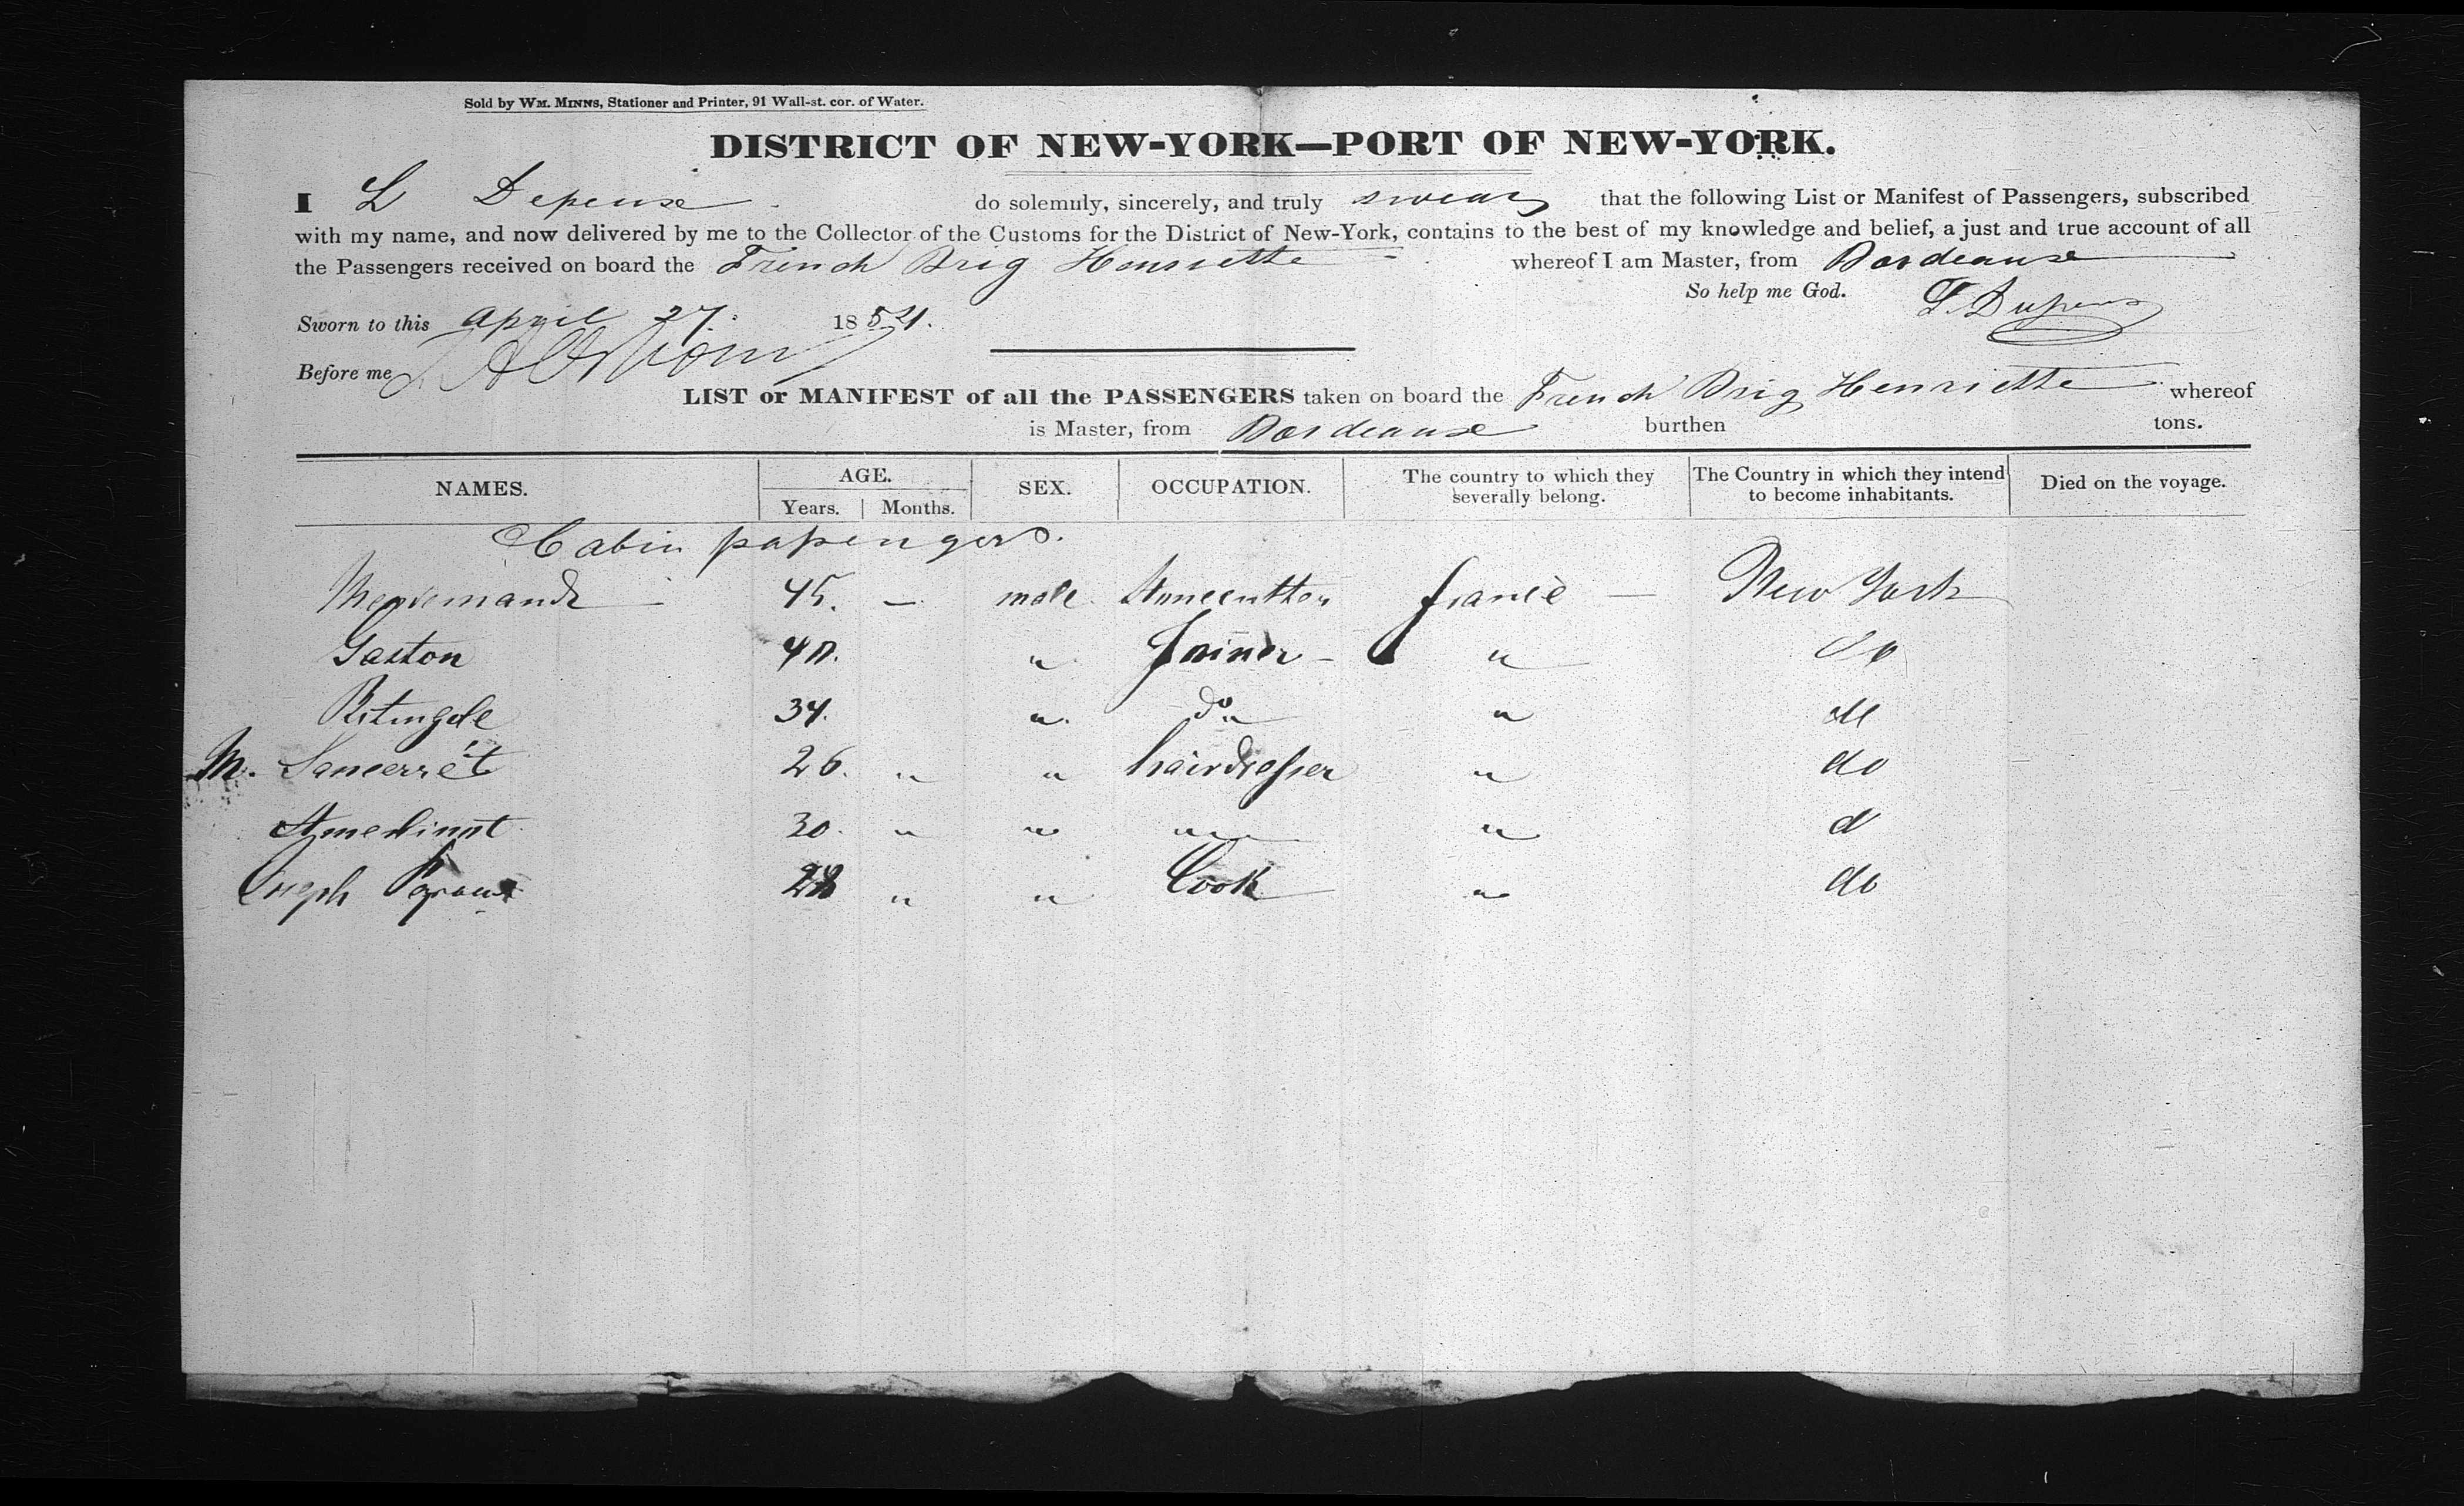 Sold by WM. MINNS, Stationer and Printer, 91 Wall-st. cor. of Water.
DISTRICT OF NEW-YORK—PORT OF NEW-YORK.
I L Depense do solemnly, sincerely, and truly swear that the following List or Manifest of Passengers, subscribed
with my name, and now delivered by me to the Collector of the Customs for the District of New-York, contains to the best of my knowledge and belief, a just and true account of all
the Passengers received on board the French Brig Henriette whereof I am Master, from Bordeaux
So help me God.
Sworn to this April 27. 18
Before me
LIST or MANIFEST of all the PASSENGERS taken on board the French Brig Henriette whereof
is Master, from Bordeaux burthen tons.
NAMES. AGE. Years. Months. SEX. OCCUPATION. The country to which they severally belong. The Country in which they intend to become inhabitants. Died on the voyage.
Cabin passengers.
45. — male Stonecutter france — New York
Gaston 40. " Joiner — " do
34. " do " do
M. 26. " " hairdresser " do
30. " " " " d
Joseph 28 " " Cook " do